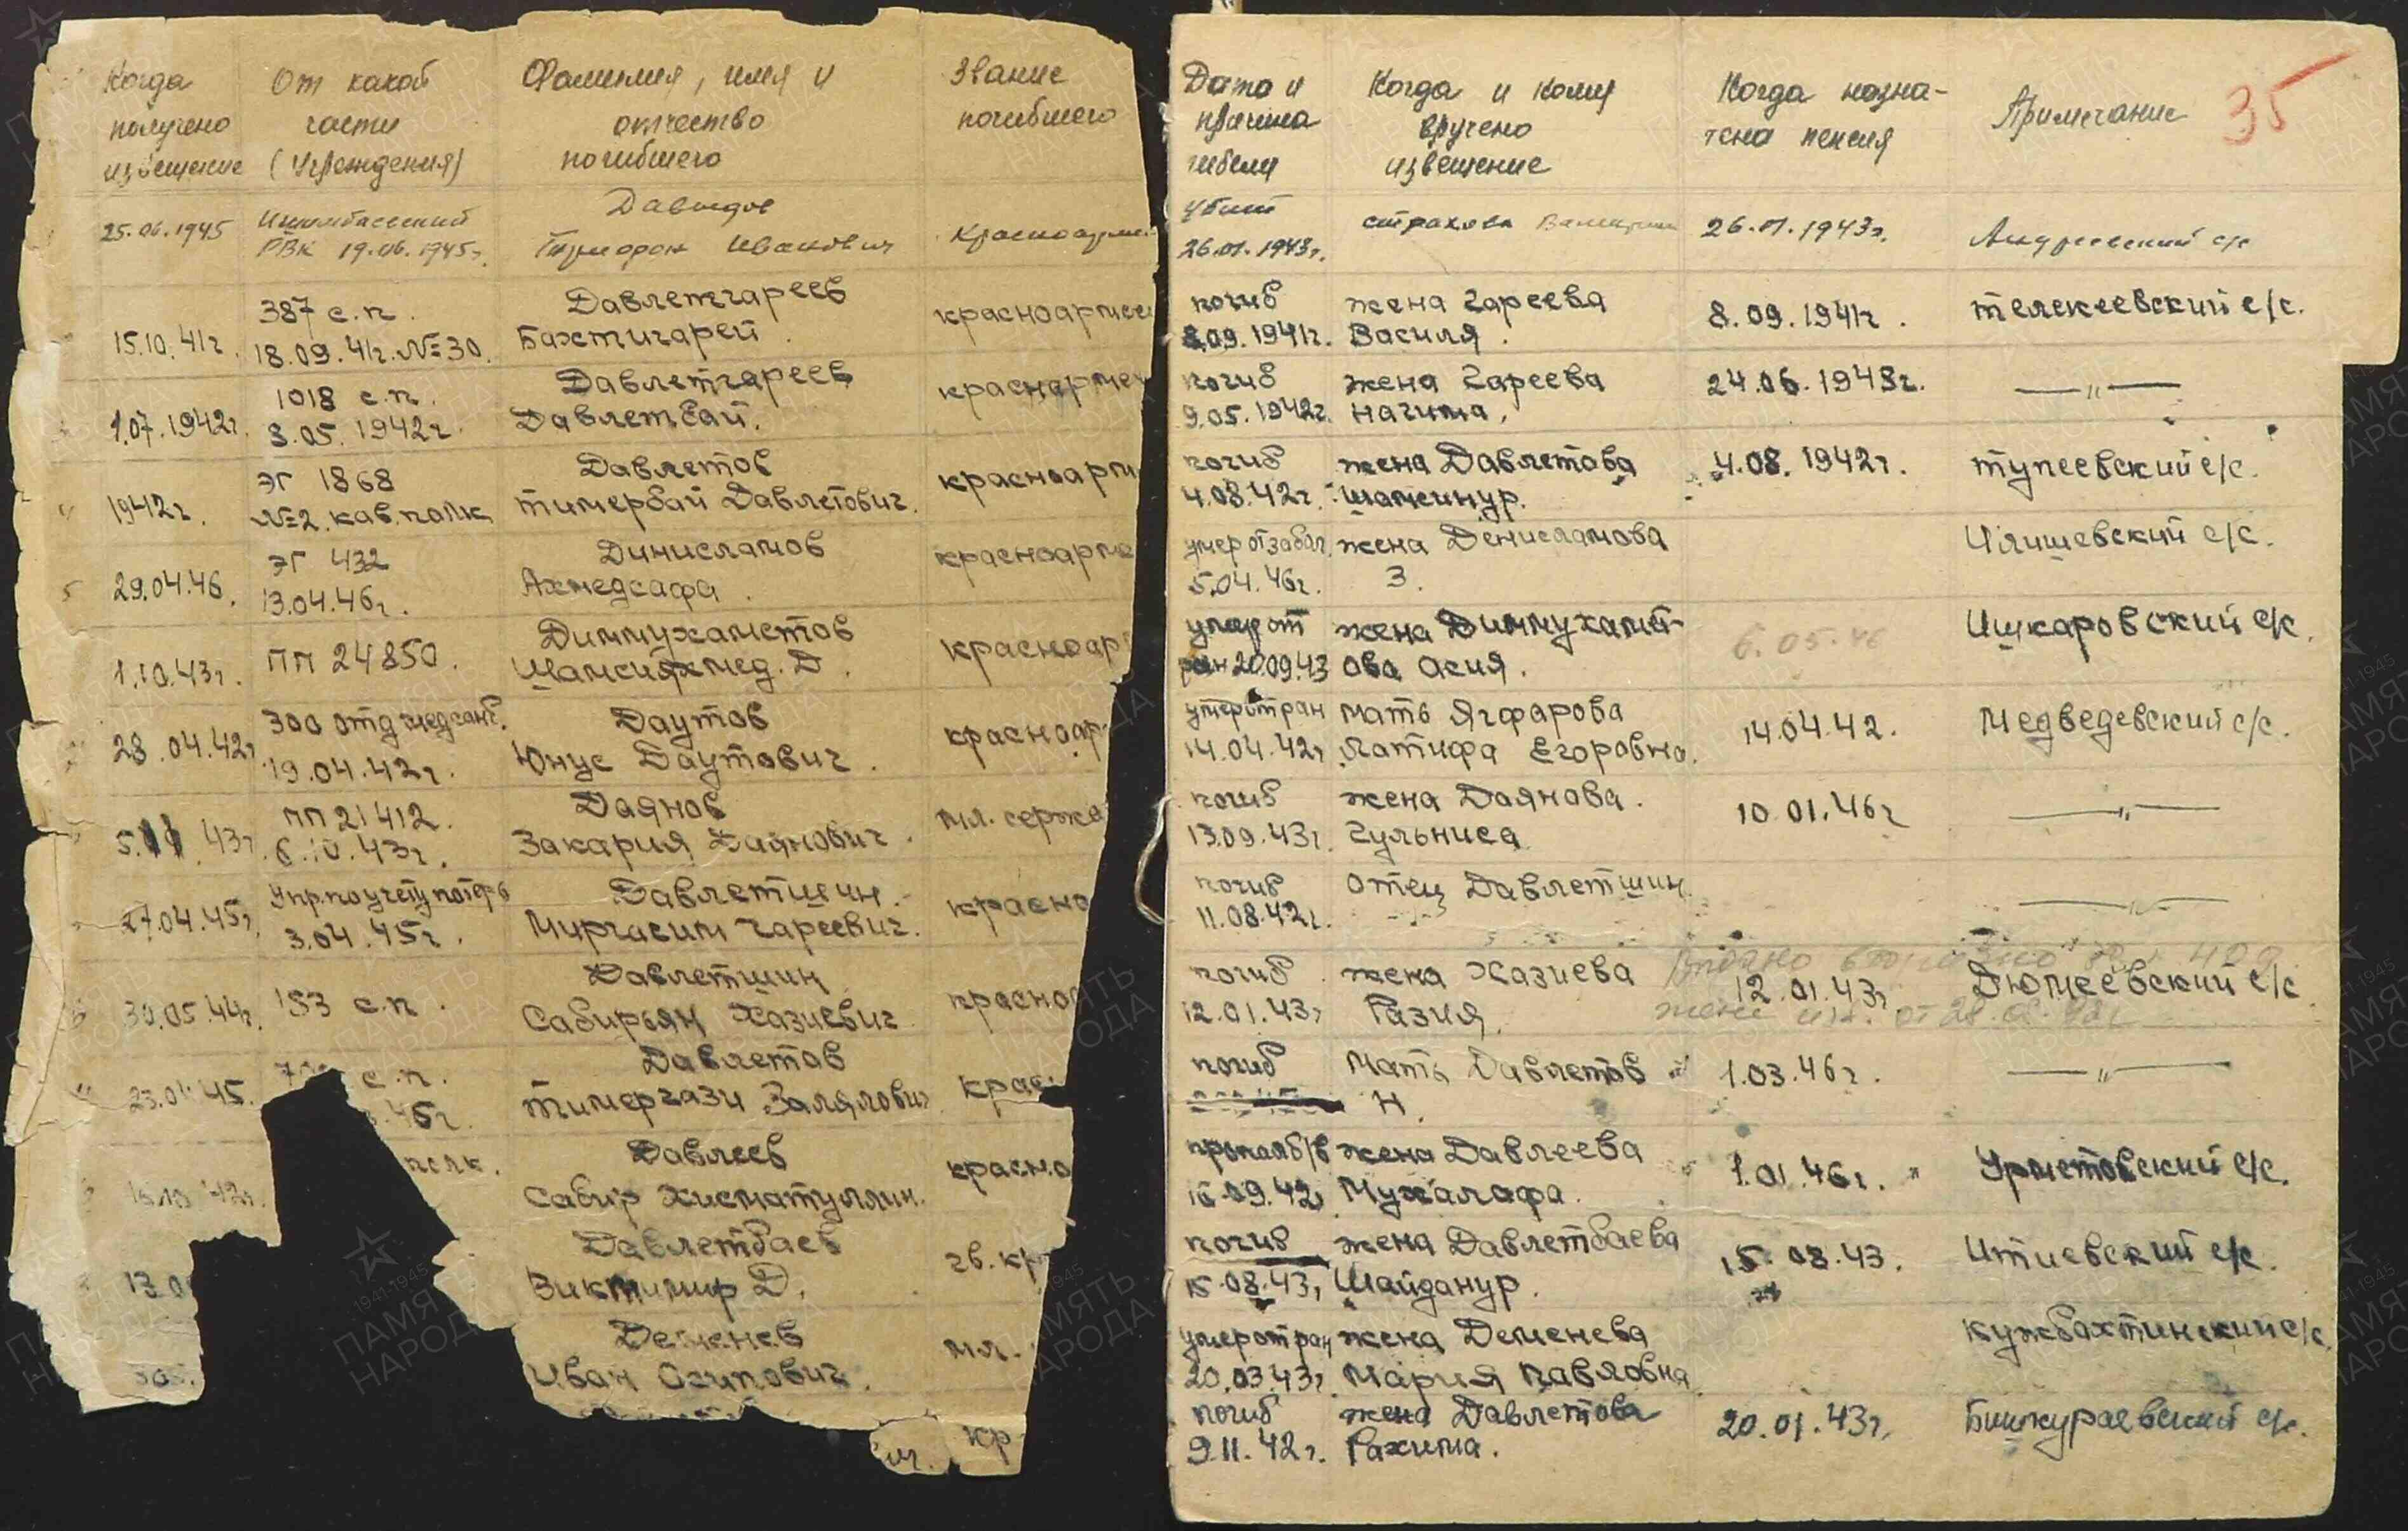 Когда
получено
извещение
От какой
части
(Учреждения)
Фамилия, имя и
отчество
погибшего
Звание
погибшего
Дата и
причина
гибели
Когда и кому
вручено
извещение
Когда назна-
чена пенсия
Примечание
35
25.06.1945
РВК 19.06.1945г.
Давыдов
Иванович
Красноарме
убит
26.01.1943г.
страхова
26.01.1943г.
Андреевский с/с
15.10.41г.
387 с.п.
18.09.41г. №30.
Давлетгареев
Бахтигарей.
красноармеец
погиб
8.09.1941г.
жена Гареева
Василя.
8.09.1941г.
телекеевский с/с.
1.07.1942г.
1018 с.п.
3.05.1942г.
Давлетгареев
Давлетбай.
краснармей
погиб
9.05.1942г.
жена Гареева
Нагима.
24.06.1943г.
—〃—
1942г.
ЭГ 1868
№2. кав. полк
Давлетов
тимербай Давлетович.
красноарм
погиб
4.08.42г.
жена Давлетова
Шамсинур.
4.08.1942г.
тупеевский с/с.
5
29.04.46.
ЭГ 432
13.04.46г.
Динисламов
Ахмедсафа.
красноарме
умер от забол
5.04.46г.
жена Денисламова
З.
Илишевский с/с.
1.10.43г.
ПП 24850.
Диммухаметов
Шамсияхмед. Д.
красноар
умер от
ран 20.09.43
жена Диммухамет-
ова Асия.
6.05.46
Ишкаровский с/с.
28.04.42г
300 отд медсанб.
19.04.42г.
Даутов
Юнус Даутович.
красноар
умер от ран
14.04.42г
мать Ягфарова
Латифа Егоровна.
14.04.42.
Медведевский с/с.
5.11.43г.
ПП 21412.
6.10.43г.
Даянов
Закария Даянович.
мл. сержа
погиб
13.09.43г.
жена Даянова.
Гульниса
10.01.46г
—〃—
27.04.45г.
Упр. по учету потерь
3.04.45г.
Давлетшин.
Миргасим Гареевич.
красно
погиб
11.08.42г.
отец Давлетшин.
—〃—
30.05.44г.
153 с.п.
Давлетшин
Сабирьян Хазиевич
красно
погиб
12.01.43г
жена Хазиева
Разия.
12.01.43г
Дюмеевский с/с
жене
с.п.
45г.
Давлетов
тимергази Залялович
крас
погиб
Мать Давлетов
Н.
1.03.46г.
—〃—
полк.
Давлеев
Сабир Хисматуллин.
красно
пропал б/в
жена Давлеева
Мухалафа.
1.01.46г.
Урметовский с/с.
13.0
Давлетбаев
Биктимир Д.
гв. кр
погиб
15.08.43г
жена Давлетбаева
Шайданур.
15.08.43.
Итиевский с/с.
Деменев
Иван Осипович.
мл.
умер от ран
20.03.43г.
жена Деменева
Мария Павловна
Кужбахтинский с/с.
ич.
кр
погиб
9.11.42г.
жена Давлетова
Рахима.
20.01.43г.
Бишкураевский с/с.